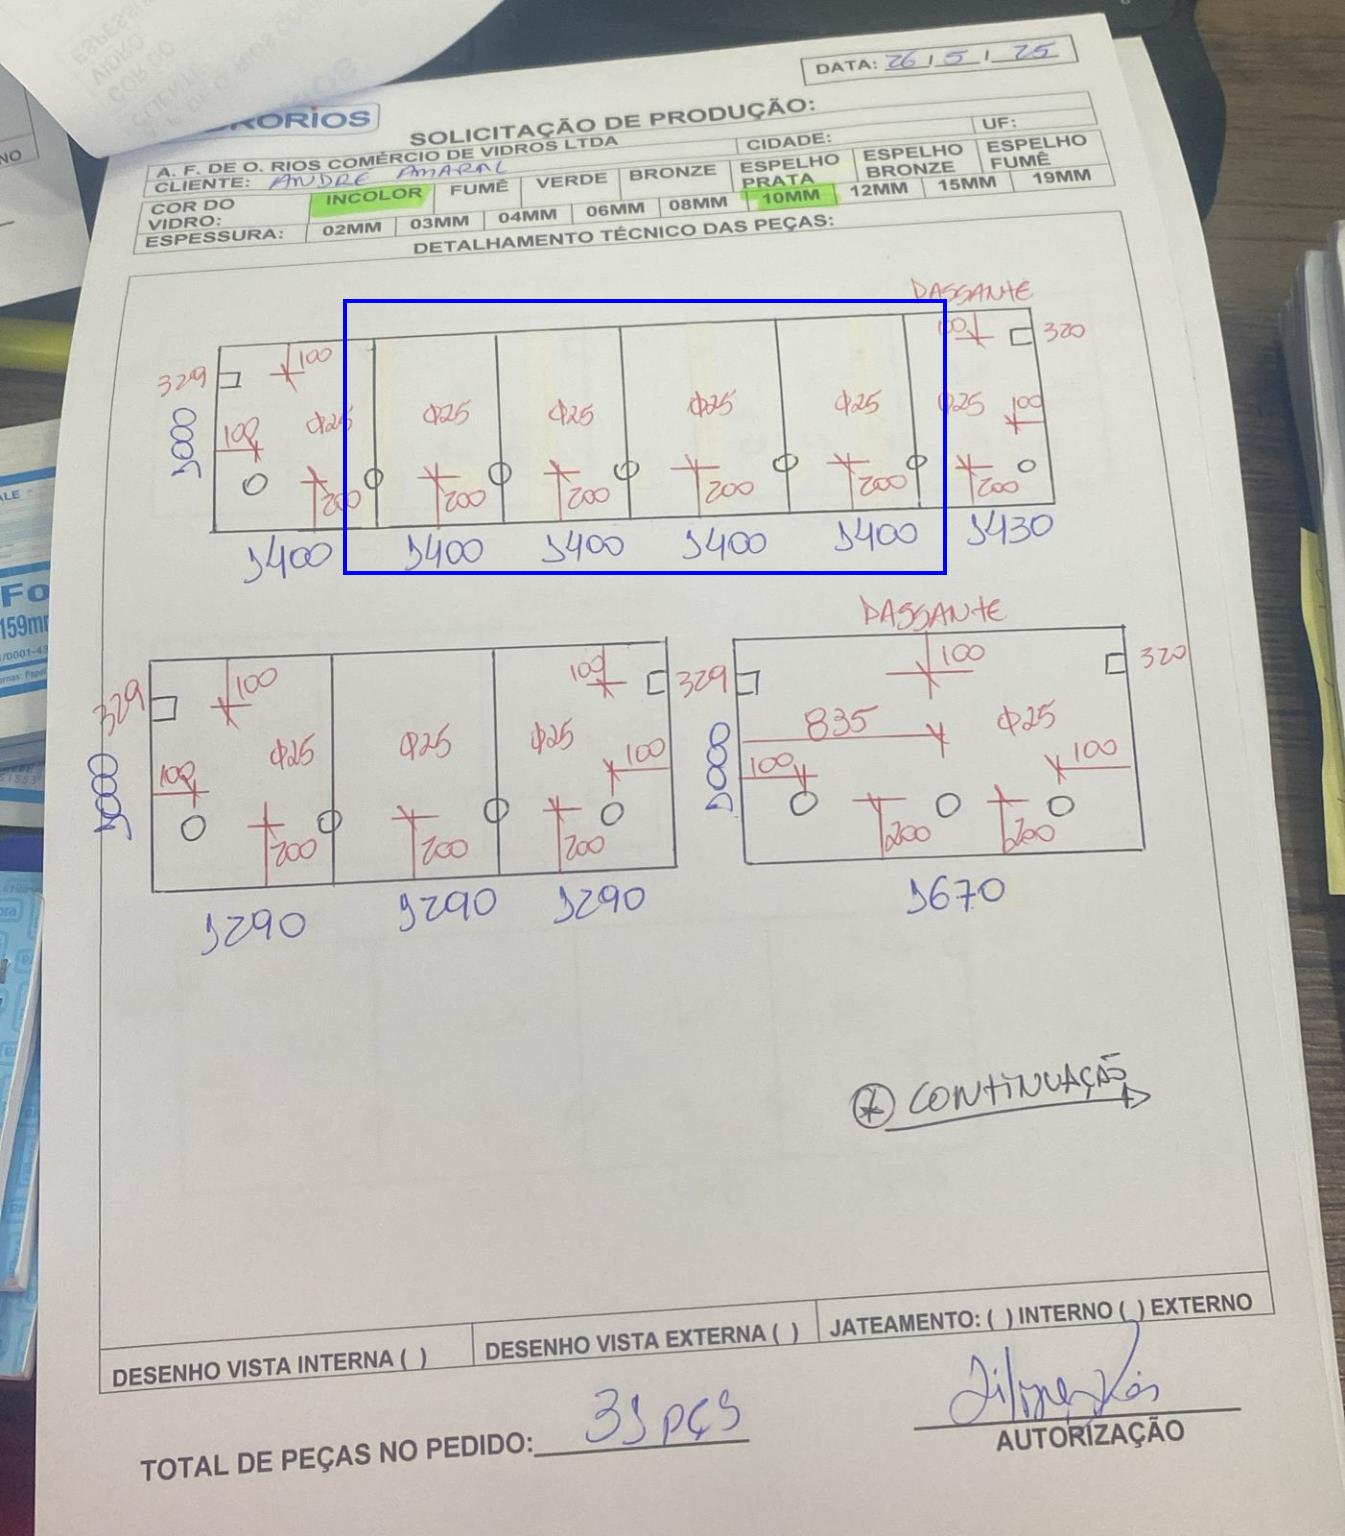 DATA: 26 / 5 / 25
RORIOS
SOLICITAÇÃO DE PRODUÇÃO:
A. F. DE O. RIOS COMÉRCIO DE VIDROS LTDA
CIDADE:
UF:
CLIENTE: ANDRE AMARAL
COR DO VIDRO:
INCOLOR
FUMÊ
VERDE
BRONZE
ESPELHO PRATA
ESPELHO BRONZE
ESPELHO FUMÊ
ESPESSURA:
02MM
03MM
04MM
06MM
08MM
10MM
12MM
15MM
19MM
DETALHAMENTO TÉCNICO DAS PEÇAS:
PASSANTE
329 100 100 320
1000 100 Φ25 Φ25 Φ25 Φ25 Φ25 Φ25 100
200 200 200 200 200 200
1400 1400 1400 1400 1400 1430
PASSANTE
329 100 100 329 100 320
1000 100 Φ25 Φ25 Φ25 100 1000 835 Φ25
100 100
200 200 200 200 200
1290 1290 1290 1670
CONTINUAÇÃO
DESENHO VISTA INTERNA ( )
DESENHO VISTA EXTERNA ( )
JATEAMENTO: ( ) INTERNO ( ) EXTERNO
TOTAL DE PEÇAS NO PEDIDO: 31 PÇS
AUTORIZAÇÃO
159mm
/0001-43